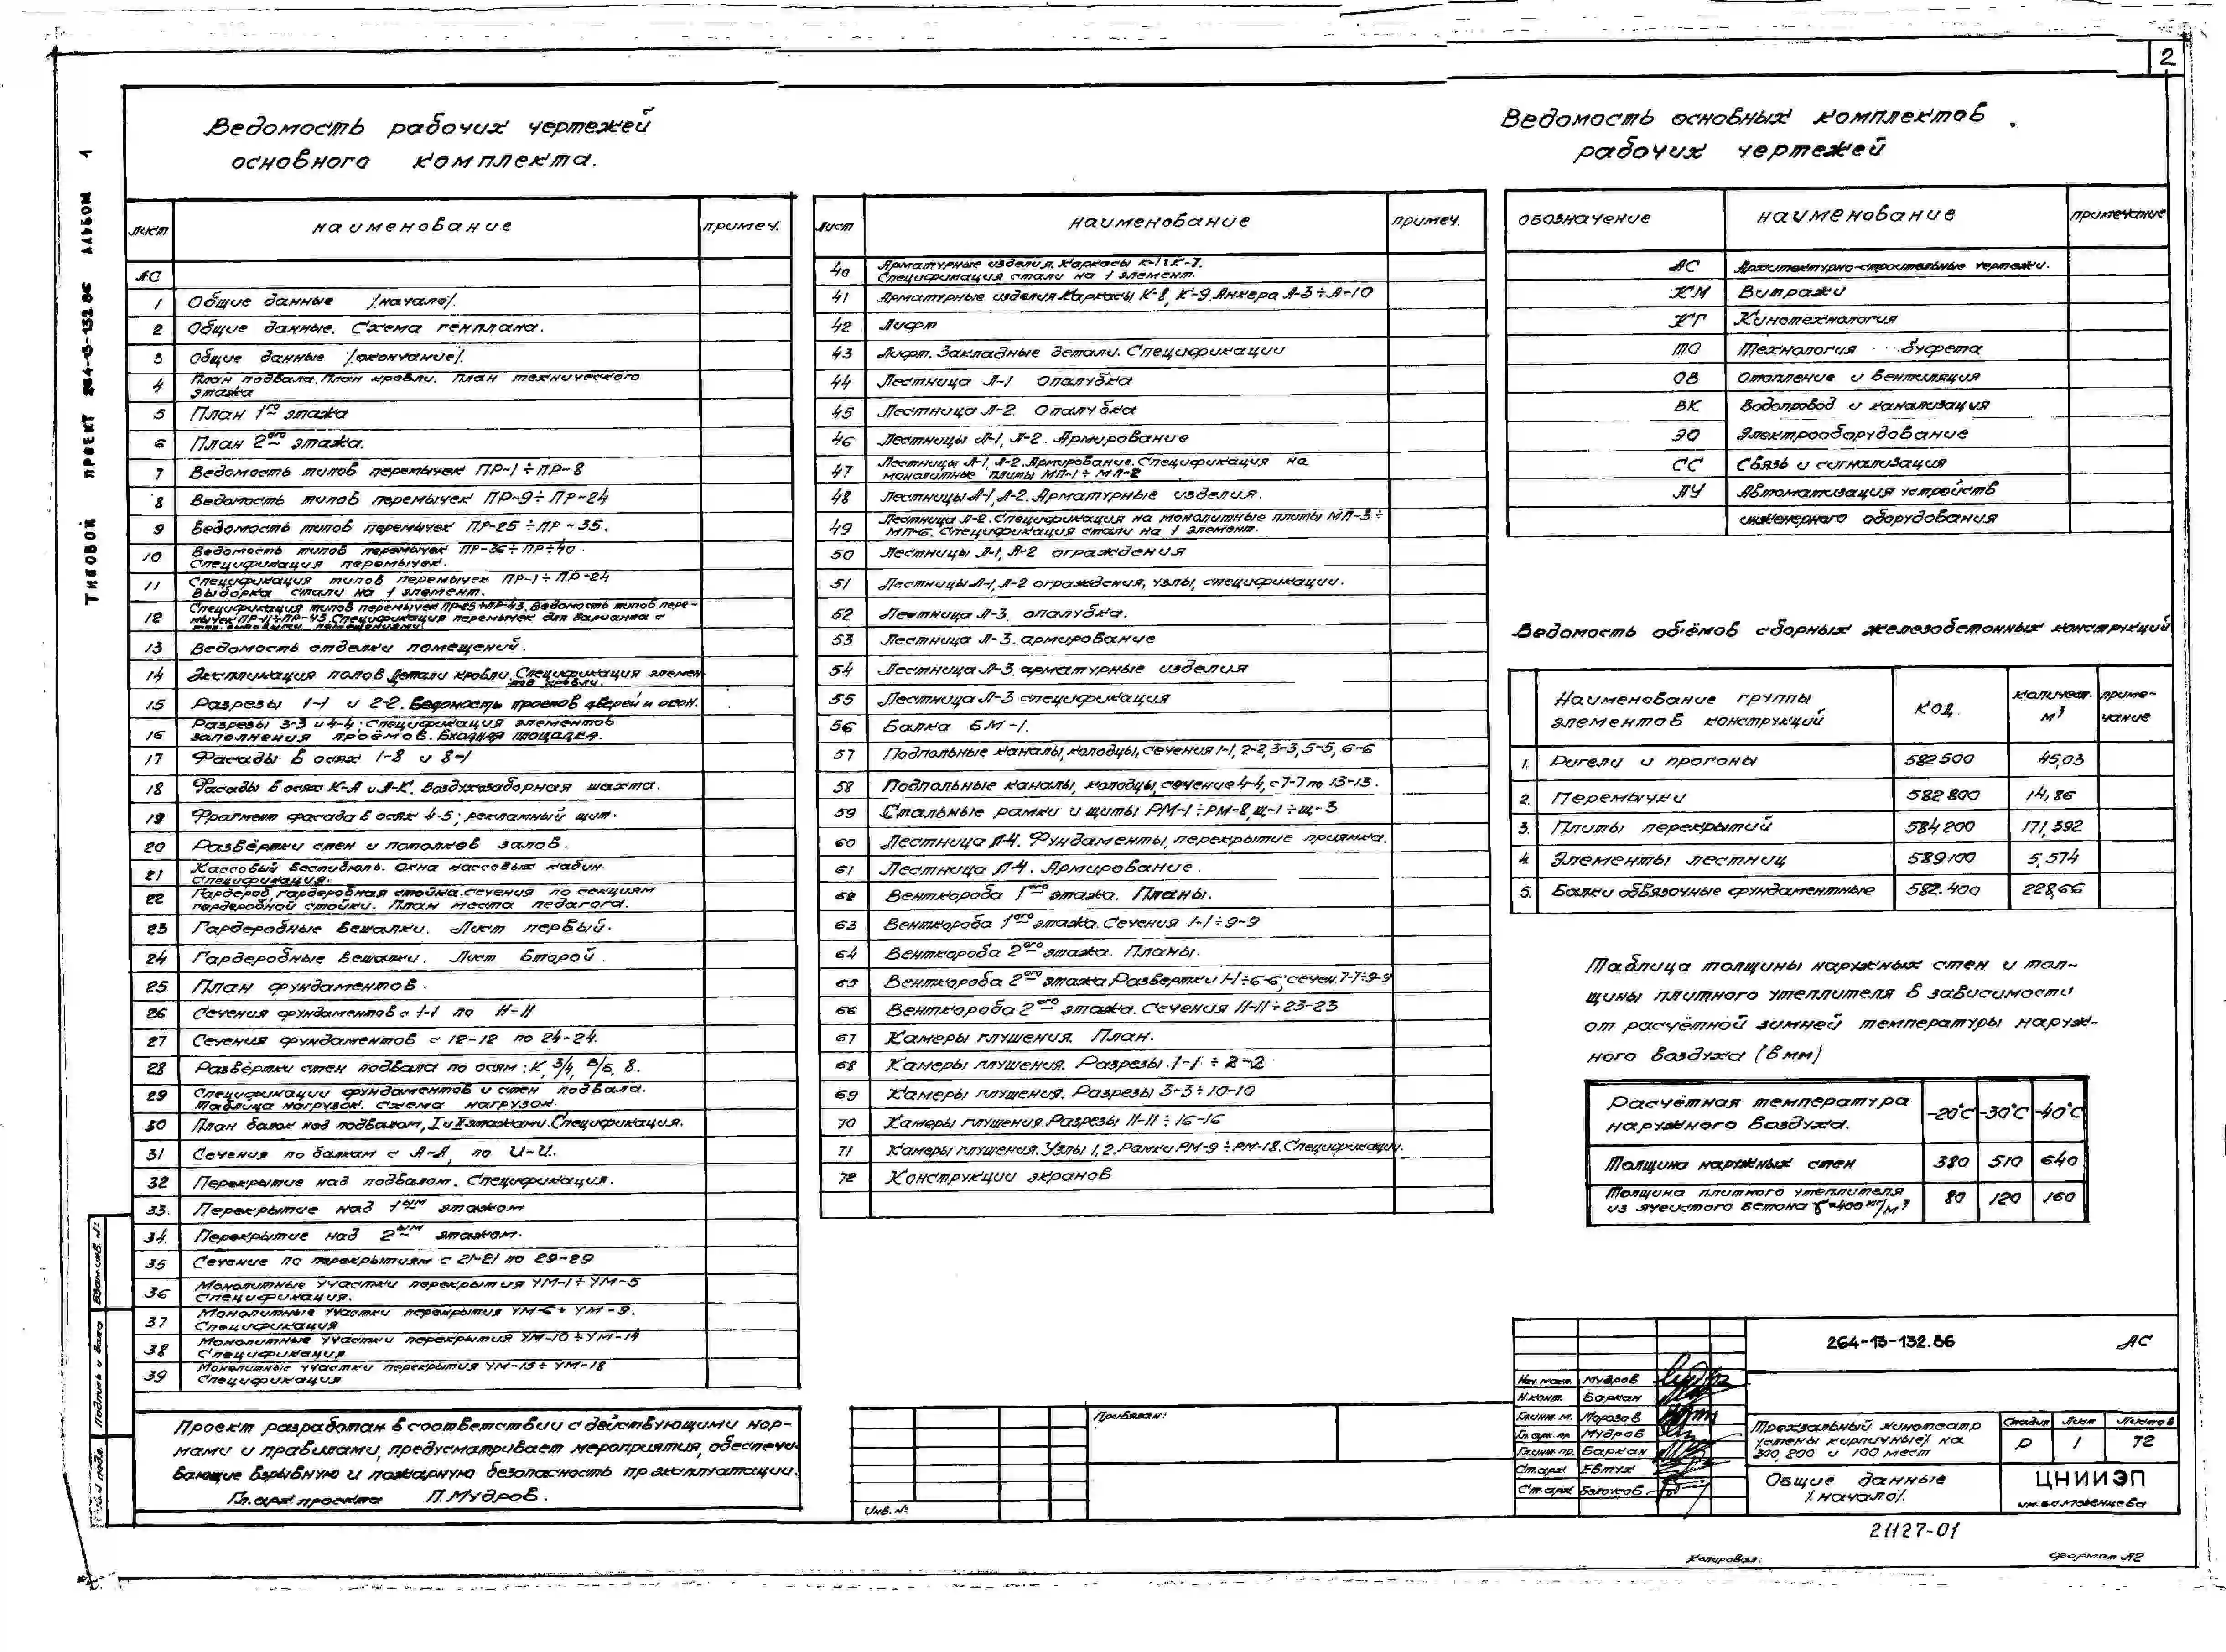 2
ТИПОВОЙ ПРОЕКТ 264-13-132.86 АЛЬБОМ 1
Ведомость рабочих чертежей
основного комплекта.
лист наименование примеч.
АС
1 Общие данные /начало/.
2 Общие данные. Схема генплана.
3 Общие данные /окончание/.
4 План подвала. План кровли. План технического
этажа
5 План 1го этажа
6 План 2ого этажа.
7 Ведомость типов перемычек ПР-1÷ПР-8
8 Ведомость типов перемычек ПР-9÷ПР-24
9 Ведомость типов перемычек ПР-25÷ПР-35.
10 Ведомость типов перемычек ПР-36÷ПР÷40
Спецификация перемычек.
11 Спецификация типов перемычек ПР-1÷ПР-24
Выборка стали на 1 элемент.
12 Спецификация типов перемычек ПР-25÷ПР-43. Ведомость типов пере-
мычек ПР-11÷ПР-43. Спецификация перемычек для варианта с
13 Ведомость отделки помещений.
14 Экспликация полов. Детали кровли. Спецификация элемен
тов кровли.
15 Разрезы 1-1 и 2-2. Ведомость проемов дверей и окон.
16 Разрезы 3-3 и 4-4; Спецификация элементов
заполнения проёмов. Входная площадка.
17 Фасады в осях 1-8 и 8-1
18 Фасады в осях К-А и А-К. Воздухозаборная шахта.
19 Фрагмент фасада в осях 4-5; рекламный щит.
20 Развёртки стен и потолков залов.
21 Кассовый вестибюль. Окна кассовых кабин.
Спецификация.
22 Гардероб, гардеробная стойка. сечения по секциям
гардеробной стойки. План места педагога.
23 Гардеробные вешалки. Лист первый.
24 Гардеробные вешалки. Лист второй.
25 План фундаментов.
26 Сечения фундаментов с 1-1 по 11-11
27 Сечения фундаментов с 12-12 по 24-24.
28 Развёртки стен подвала по осям: К, 3/4, В/Б, 8.
29 Спецификации фундаментов и стен подвала.
Таблица нагрузок. схема нагрузок.
30 План балок над подвалом, I и II этажами. Спецификация.
31 Сечения по балкам с А-А, по И-И.
32 Перекрытие над подвалом. Спецификация.
33. Перекрытие над 1ым этажом
34. Перекрытие над 2ым этажом.
35 Сечение по перекрытиям с 21-21 по 29-29
36 Монолитные участки перекрытия УМ-1÷УМ-5
Спецификация.
37 Монолитные участки перекрытия УМ-6÷УМ-9.
Спецификация
38 Монолитные участки перекрытия УМ-10÷УМ-14
Спецификация
39 Монолитные участки перекрытия УМ-15÷УМ-18
Спецификация
Проект разработан в соответствии с действующими нор-
мами и правилами, предусматривает мероприятия, обеспечи-
вающие взрывную и пожарную безопасность пр эксплуатации.
Гл. арх проекта П. Мудров.
Взам. инв. №
Подпись и дата
лист наименование примеч.
40 Арматурные изделия. Каркасы К-1÷К-7.
Спецификация стали на 1 элемент.
41 Арматурные изделия Каркасы К-8, К-9. Анкера А-3÷А-10
42 Лифт
43 Лифт. Закладные детали. Спецификации
44 Лестница Л-1 Опалубка
45 Лестница Л-2. Опалубка
46 Лестницы Л-1, Л-2. Армирование
47 Лестницы Л-1, Л-2. Армирование. Спецификация на
монолитные плиты МП-1÷МП-2
48 Лестницы Л-1, Л-2. Арматурные изделия.
49 Лестница Л-2. Спецификация на монолитные плиты МП-3÷
МП-6. Спецификация стали на 1 элемент.
50 Лестницы Л-1, Л-2 ограждения
51 Лестницы Л-1, Л-2 ограждения, узлы, спецификации.
52 Лестница Л-3. опалубка.
53 Лестница Л-3. армирование
54 Лестница Л-3. арматурные изделия
55 Лестница Л-3 спецификация
56 Балка БМ-1.
57 Подпольные каналы, колодцы, сечения 1-1, 2-2, 3-3, 5-5, 6-6
58 Подпольные каналы, колодцы, сечение 4-4, с 7-7 по 13-13.
59 Стальные рамки и щиты РМ-1÷РМ-8, щ-1÷щ-3
60 Лестница Л-4. Фундаменты, перекрытие приямка.
61 Лестница Л-4. Армирование.
62 Венткороба 1ого этажа. Планы.
63 Венткороба 1ого этажа. Сечения 1-1÷9-9
64 Венткороба 2ого этажа. Планы.
65 Венткороба 2ого этажа. Развертки 1-1÷6-6; сечен. 7-7÷9-9
66 Венткороба 2ого этажа. Сечения 11-11÷23-23
67 Камеры глушения. План.
68 Камеры глушения. Разрезы 1-1÷2-2
69 Камеры глушения. Разрезы 3-3÷10-10
70 Камеры глушения. Разрезы 11-11÷16-16
71 Камеры глушения. Узлы 1, 2. Рамки РМ-9÷РМ-18. Спецификации.
72 Конструкции экранов
Ведомость основных комплектов
рабочих чертежей
обозначение наименование примечание
АС Архитектурно-строительные чертежи.
КМ Витражи
КТ Кинотехнология
ТО Технология буфета
ОВ Отопление и вентиляция
ВК Водопровод и канализация
ЭО Электрооборудование
СС Связь и сигнализация
АУ Автоматизация устройств
инженерного оборудования
Ведомость объёмов сборных железобетонных конструкций
Наименование группы
элементов конструкций
код. количест. м³ приме-
чание
1. Ригели и прогоны 582500 45,03
2. Перемычки 582800 14,86
3. Плиты перекрытий 584200 171,392
4. Элементы лестниц 589100 5,574
5. Балки обвязочные фундаментные 582.400 228,66
Таблица толщины наружных стен и тол-
щины плитного утеплителя в зависимости
от расчётной зимней температуры наруж-
ного воздуха (в мм)
Расчётная температура
наружного воздуха. -20°С -30°С -40°С
Толщина наружных стен 380 510 640
Толщина плитного утеплителя
из ячеистого бетона γ=400 кг/м³ 80 120 160
Привязан:
Инв. №
Нач. маст. Мудров
Н. конт. Баркан
Гл. инж. м. Морозов
Гл. арх. пр. Мудров
Гл. инж. пр. Баркан
Ст. арх. Евтух
Ст. арх. Белоусов
264-13-132.86 АС
Трехзальный кинотеатр
/стены кирпичные/ на
300, 200 и 100 мест
Стадия Лист Листов
Р 1 72
Общие данные
/начало/.
ЦНИИЭП
им. Б.С. Мезенцева
21127-01
Копировал:
Формат А2